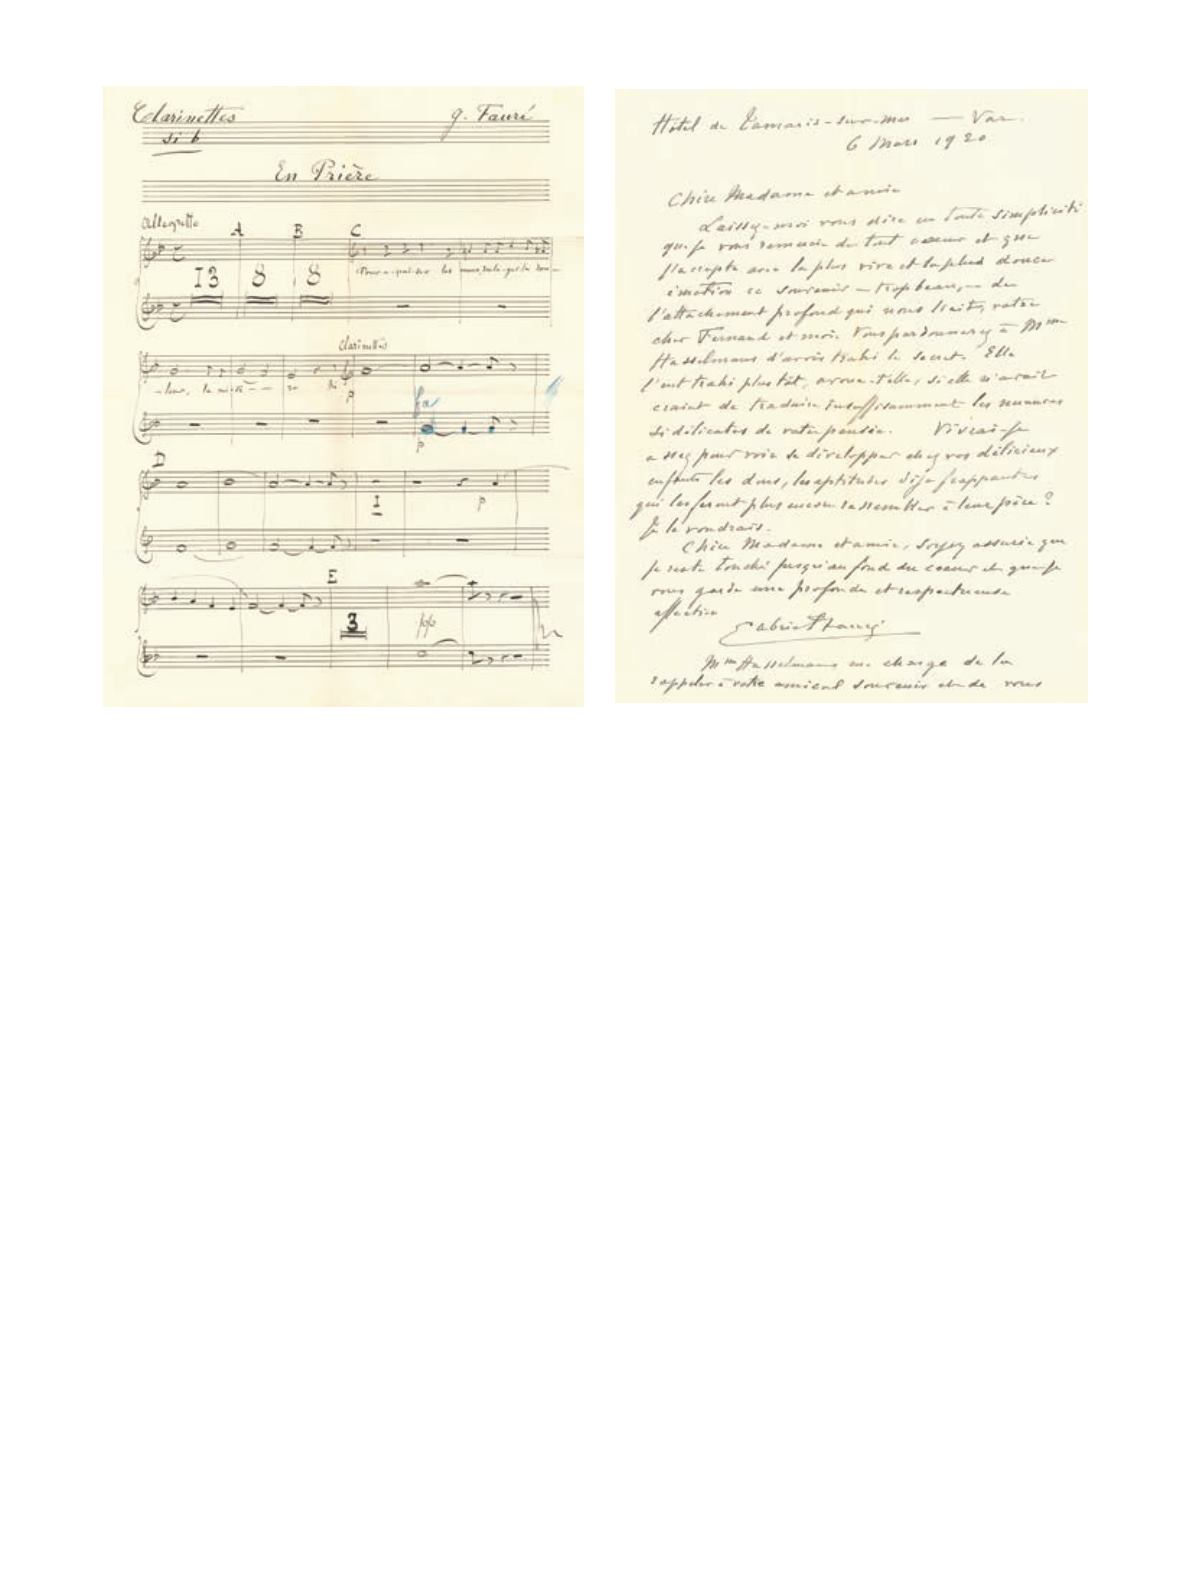 Clarinettes
si b
G. Fauré
En Prière
Allegretto
A B C
13 8 8
Pour a-pai-ser les maux, sou-la-ger la dou-
Clarinettes
-leur, la mi-sè-re
p
fa
p
D
1
p
E
3
pp
Hôtel de Tamaris-sur-mer — Var.
6 Mars 1920
Chère Madame et amie
Laissez-moi vous dire en toute simplicité
que je vous remercie de tout coeur et que
j'accepte avec la plus vive et la plus douce
émotion ce souvenir — trop beau, — de
l'attachement profond qui nous liait, votre
cher Fernand et moi. Vous pardonnerez à Mme
Hasselmans d'avoir trahi le secret. Elle
l'eut trahi plus tôt, avoue-t-elle, si elle n'avait
craint de traduire insuffisamment les nuances
si délicates de votre pensée. Vivrai-je
assez pour voir se développer chez vos délicieux
enfants les dons, les aptitudes déjà frappantes
qui les feront plus encore ressembler à leur père?
Je le voudrais.
Chère Madame et amie, soyez assurée que
je reste touché jusqu'au fond du coeur et que je
vous garde une profonde et respectueuse
affection
Gabriel Fauré
Mme Hasselmans me charge de la
rappeler à votre amical souvenir et de vous